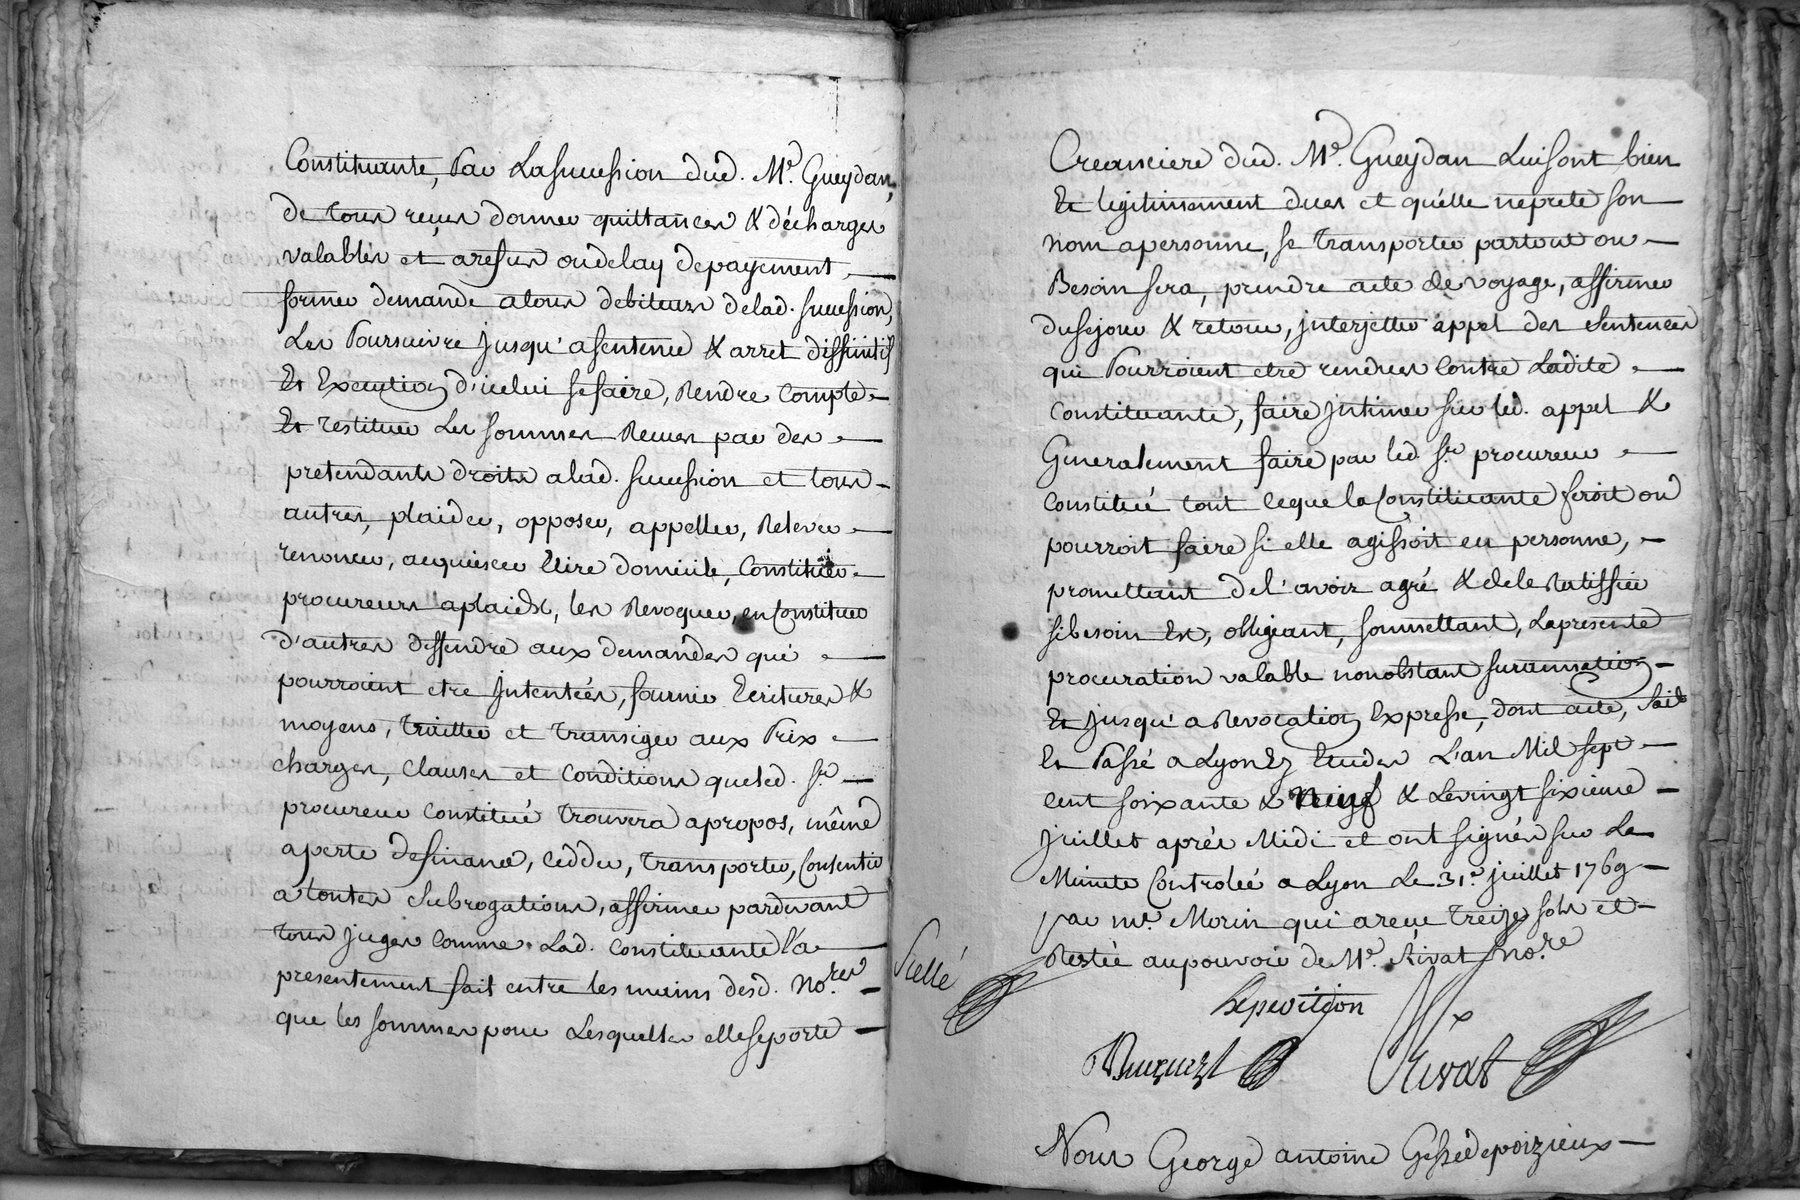 Constituante, Par La succession dud. Me. Gueydan,
de tous reçus donner quittances & décharges
valables et a refus ou delay de payement
former demande a tous debiteurs de lad. succession,
Les Poursuivre jusqu'a sentence & arret diffinitif
Et Execution d'icelui se faire, Rendre compte
Et restituer Les sommes Recues par des
pretendants droits a lad. succession et tous
autres, plaider, opposer, appeller, Relever
renoncer, acquiescer Elire domicile, Constituer
procureurs a plaids, les Revoquer, en Constituer
d'autres deffendre aux demandes qui
pourroient etre Intentées, fournir Ecritures &
moyens, traitter et transiger aux Prix
charges, clauses et conditions que led. Sr.
procureur constitué trouvera a propos, même
a perte de finance, cedder, transporter, Consentir
a toutes Subrogations, affirmer pardevant
tous juges comme Lad. constituante l'a
presentement fait entre les mains desd. No.res
que les sommes pour Lesquelles elle se porte
Scellé
Creanciere dud. Me. Gueydan Lui sont bien
Et legitimement dues et qu'elle ne prete son
nom a personne, se transporter partout ou
Besoin sera, prendre acte de voyage, affirmer
du sejour & retour, interjetter appel des sentences
qui Pourroient etre rendues Contre Ladite
constituante, faire intimer sur led. appel &
Generalement faire par led. Sr. procureur
constitué tout ce que la Constituante feroit ou
pourroit faire si elle agissoit en personne,
promettant de l'avoir agré & de le Ratiffier
si besoin Est, obligeant, soumettant, La presente
procuration valable nonobstant surannation
Et jusqu'a Revocation Expresse, dont acte, fait
Et Passé a Lyon Ez Etudes L'an Mil sept
cent soixante & Neuf & Le vingt sixieme
juillet après Midi et ont signés sur La
Minute Controlée a Lyon Le 31e. juillet 1769
par me. Morin qui a reçu treize sols et
Restée au pouvoir de Me. Rivat No.re
Expedition
Rivat
Nous George antoine Gesse de poizieux